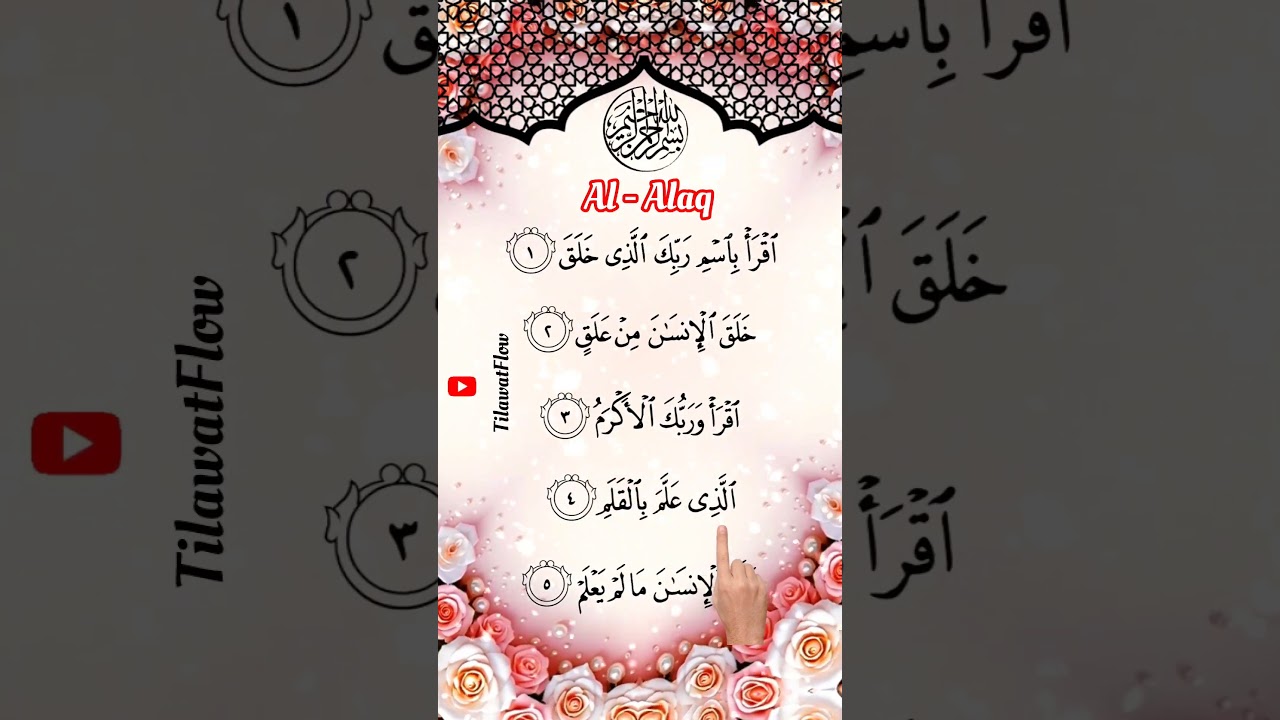 بسم الله الرحمن الرحيم
Al - Alaq
ٱقۡرَأۡ بِٱسۡمِ رَبِّكَ ٱلَّذِى خَلَقَ ١
خَلَقَ ٱلۡإِنسَٰنَ مِنۡ عَلَقٍ ٢
ٱقۡرَأۡ وَرَبُّكَ ٱلۡأَكۡرَمُ ٣
ٱلَّذِى عَلَّمَ بِٱلۡقَلَمِ ٤
ٱلۡإِنسَٰنَ مَا لَمۡ يَعۡلَمۡ ٥
TilawatFlow